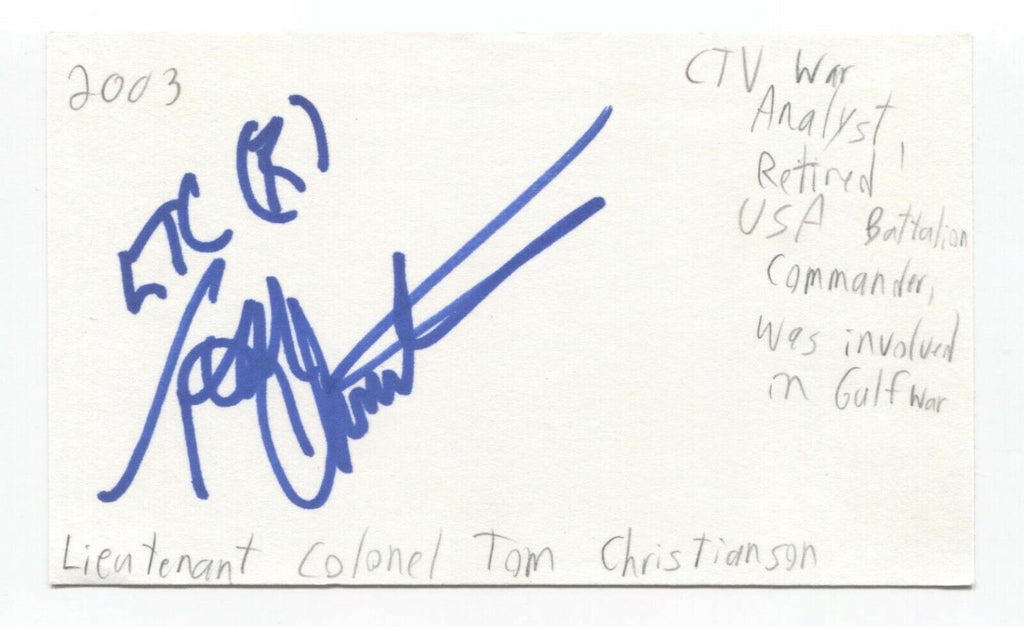 2003
CTV War
Analyst,
Retired
USA Battalion
Commander,
was involved
in Gulf war
LTC (R)
Lieutenant Colonel Tom Christianson